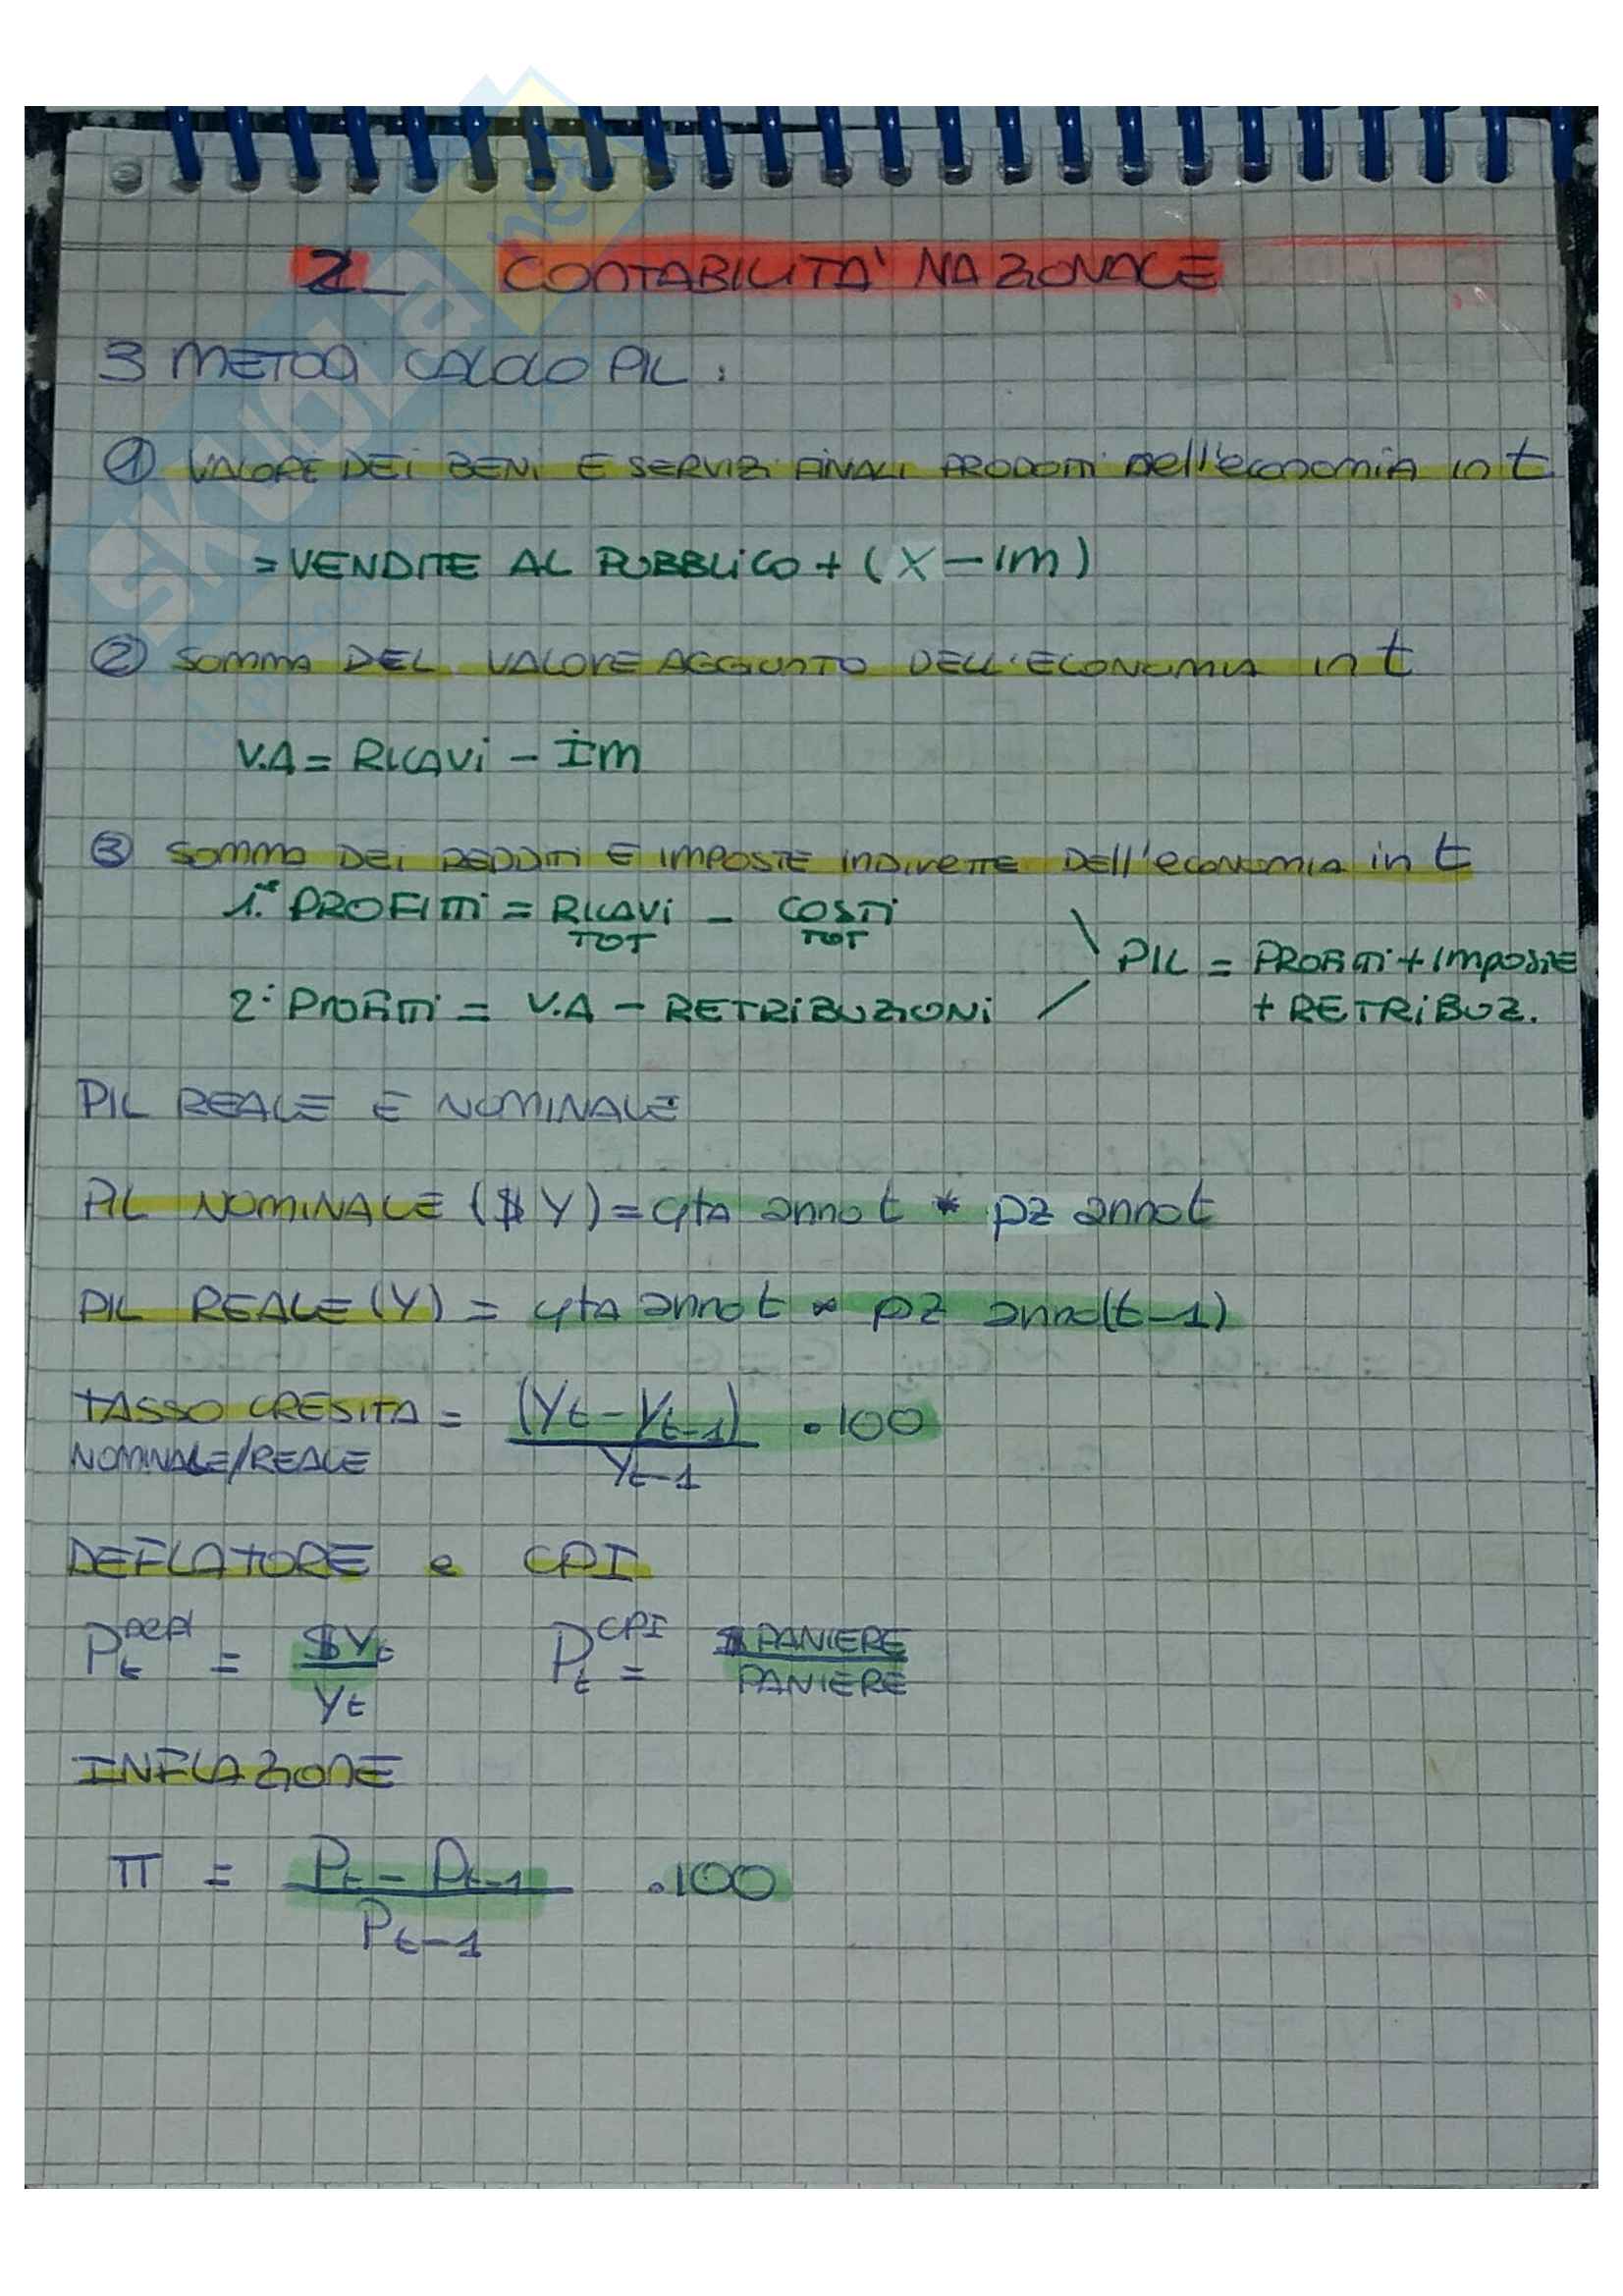 2_ CONTABILITA' NAZIONALE
3 METODI CALCOLO PIL:
① VALORE DEI BENI E SERVIZI FINALI PRODOTTI dell'economia in t
= VENDITE AL PUBBLICO + (X - IM)
② SOMMA DEL VALORE AGGIUNTO DELL'ECONOMIA in t
V.A = RICAVI - IM
③ SOMMA DEI REDDITI E IMPOSTE INDIRETTE DELL'economia in t
1° PROFITTI = RICAVI TOT - COSTI TOT
PIL = PROFITTI + IMPOSTE + RETRIBUZ.
2° PROFITTI = V.A - RETRIBUZIONI
PIL REALE E NOMINALE
PIL NOMINALE ($Y) = qta anno t * pz anno t
PIL REALE (Y) = qta anno t * pz anno (t-1)
TASSO CRESITA NOMINALE/REALE = (Yt - Yt-1) / Yt-1 · 100
DEFLATORE e CPI
Pt = $Yt / Yt Pt CPI = $ PANIERE / PANIERE
INFLAZIONE
π = Pt - Pt-1 / Pt-1 · 100
SKUOLA.net